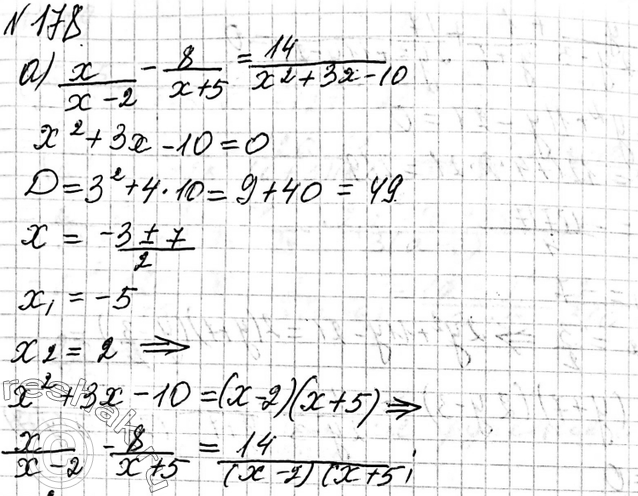 N 178
а) x/(x-2) - 8/(x+5) = 14/(x²+3x-10)
x²+3x-10=0
D=3²+4·10=9+40=49
x = (-3±7)/2
x₁ = -5
x₂ = 2 ⇒
x²+3x-10=(x-2)(x+5) ⇒
x/(x-2) - 8/(x+5) = 14/((x-2)(x+5);
reshak.ru